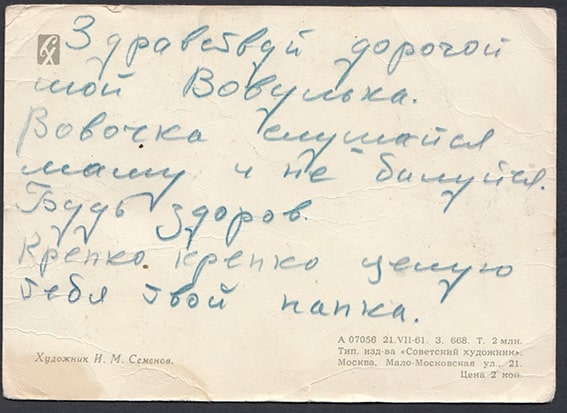 Здравствуй дорогой
мой Вовулька.
Вовочка слушайся
маму и не балуйся.
Будь здоров.
Крепко крепко целую
тебя твой папка.
Художник И. М. Семенов.
А 07056 21.VII-61. З. 668. Т. 2 млн.
Тип. изд-ва «Советский художник».
Москва, Мало-Московская ул., 21.
Цена 2 коп.